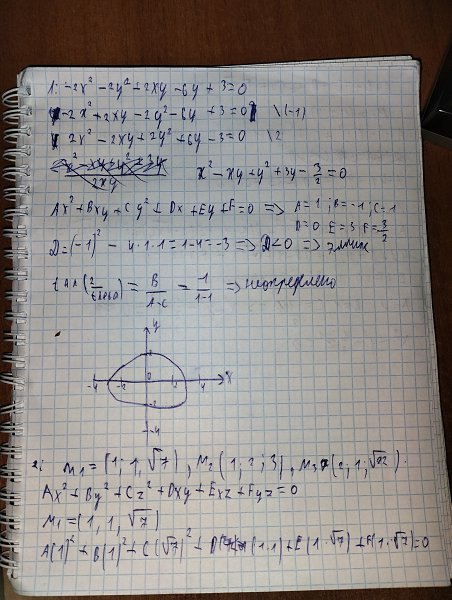 1. -2x² -2y² +2xy -6y +3=0
-2x² +2xy -2y² -6y +3=0 \(-1)
2x² -2xy +2y² +6y -3=0 \2
2xy
x² -xy +y² +3y - 3/2 =0
Ax² +Bxy +Cy² + Dx +Ey +F=0 => A=1 ; B=-1 ; C=1
D=0 E=3 F=3/2
D=(-1)² - 4·1·1=1-4=-3 => D<0 =>
= B/(A-C) = -1/(1-1) => неопределено
y
-4 -2 0 4 x
-2
-4
2. M1=(1; 1, √7) , M2(1; 2; 3), M3(2; 1; √22).
Ax² +By² +Cz² +Dxy +Exz +Fyz=0
M1=(1, 1, √7)
A(1)² +B(1)² +C(√7)² +D(1·1)+E(1·√7)+F(1·√7)=0